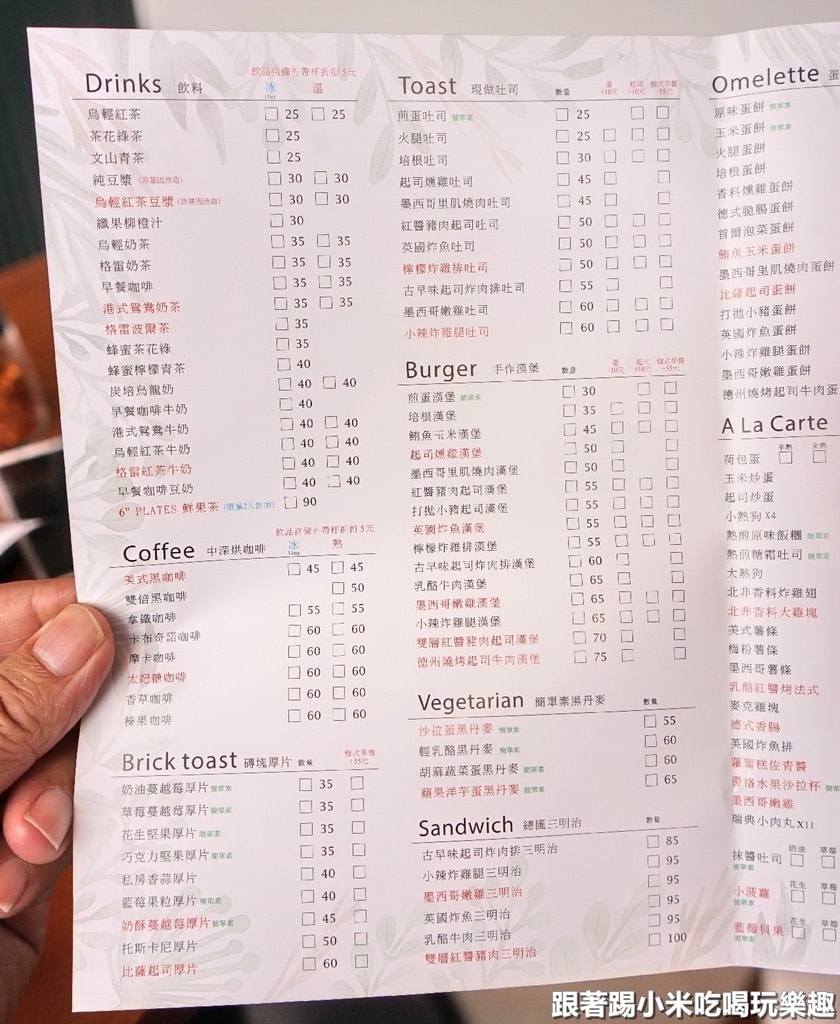 Drinks 飲料
飲品自備外帶杯折扣5元
冰 溫
烏輕紅茶 25 25
茶花綠茶 25
文山青茶 25
純豆漿 (非基因改造) 30 30
烏輕紅茶豆漿 (非基因改造) 30 30
纖果柳橙汁 30
烏輕奶茶 35 35
格雷奶茶 35 35
早餐咖啡 35 35
港式鴛鴦奶茶 35 35
格雷波爾茶 35
蜂蜜茶花綠 35
蜂蜜檸檬青茶 40
炭培烏龍奶 40 40
早餐咖啡牛奶 40
港式鴛鴦牛奶 40 40
烏輕紅茶牛奶 40 40
格雷紅茶牛奶 40 40
早餐咖啡豆奶 40 40
6" PLATES 鮮果茶 (限量2人飲用) 90
飲品自備外帶杯折扣5元
Coffee 中深烘咖啡 冰 熱
美式黑咖啡 45 45
雙倍黑咖啡 50
拿鐵咖啡 55 55
卡布奇諾咖啡 60 60
摩卡咖啡 60 60
太妃糖咖啡 60 60
香草咖啡 60 60
榛果咖啡 60 60
Brick toast 磚塊厚片 數量 盤式早餐 +55元
奶油蔓越莓厚片 簡單素 35
草莓蔓越莓厚片 簡單素 35
花生堅果厚片 簡單素 35
巧克力堅果厚片 簡單素 35
私房香蒜厚片 40
藍莓果粒厚片 簡單素 40
奶酥蔓越莓厚片 簡單素 45
托斯卡尼厚片 50
比薩起司厚片 60
Toast 現做吐司 數量 蛋 +10元 起司 +10元 盤式早餐 +55元
煎蛋吐司 簡單素 25
火腿吐司 25
培根吐司 30
起司燻雞吐司 45
墨西哥里肌燒肉吐司 45
紅醬豬肉起司吐司 50
英國炸魚吐司 50
檸檬炸雞排吐司 50
古早味起司炸肉排吐司 55
墨西哥嫩雞吐司 60
小辣炸雞腿吐司 60
Burger 手作漢堡 數量 蛋 +10元 起司 +10元 盤式早餐 +55元
煎蛋漢堡 簡單素 30
培根漢堡 35
鮪魚玉米漢堡 45
起司燻雞漢堡 50
墨西哥里肌燒肉漢堡 50
紅醬豬肉起司漢堡 55
打拋小豬起司漢堡 55
英國炸魚漢堡 55
檸檬炸雞排漢堡 55
古早味起司炸肉排漢堡 60
乳酪牛肉漢堡 65
墨西哥嫩雞漢堡 65
小辣炸雞腿漢堡 65
雙層紅醬豬肉起司漢堡 70
德州燒烤起司牛肉漢堡 75
Vegetarian 簡單素黑丹麥 數量
沙拉蛋黑丹麥 簡單素 55
輕乳酪黑丹麥 簡單素 60
胡麻蔬菜蛋黑丹麥 簡單素 60
蘋果洋芋蛋黑丹麥 簡單素 65
Sandwich 總匯三明治 數量
古早味起司炸肉排三明治 85
小辣炸雞腿三明治 95
墨西哥嫩雞三明治 95
英國炸魚三明治 95
乳酪牛肉三明治 95
雙層紅醬豬肉三明治 100
Omelette 蛋
原味蛋餅 簡單素
玉米蛋餅 簡單素
火腿蛋餅
培根蛋餅
香料燻雞蛋餅
德式脆腸蛋餅
首爾泡菜蛋餅
鮪魚玉米蛋餅
墨西哥里肌燒肉蛋餅
比薩起司蛋餅
打拋小豬蛋餅
英國炸魚蛋餅
小辣炸雞腿蛋餅
墨西哥嫩雞蛋餅
德州燒烤起司牛肉蛋
A La Carte
荷包蛋 半熟 全熟
玉米炒蛋
起司炒蛋
小熱狗 X4
熱煎原味飯糰 簡單素
熱煎糖霜吐司 簡單素
大熱狗
北非香料炸雞翅
北非香料大雞塊
美式薯條
梅粉薯條
墨西哥薯條
乳酪紅醬烤法式
麥克雞塊
德式香腸
英國炸魚排
蘿蔔糕佐青醬
優格水果沙拉杯 簡單
墨西哥嫩雞
瑞典小肉丸 X11
抹醬吐司 簡單素 奶油 草莓
小菠蘿 簡單素 花生 草莓
藍莓貝果 簡單素 花生 草莓
跟著踢小米吃喝玩樂趣